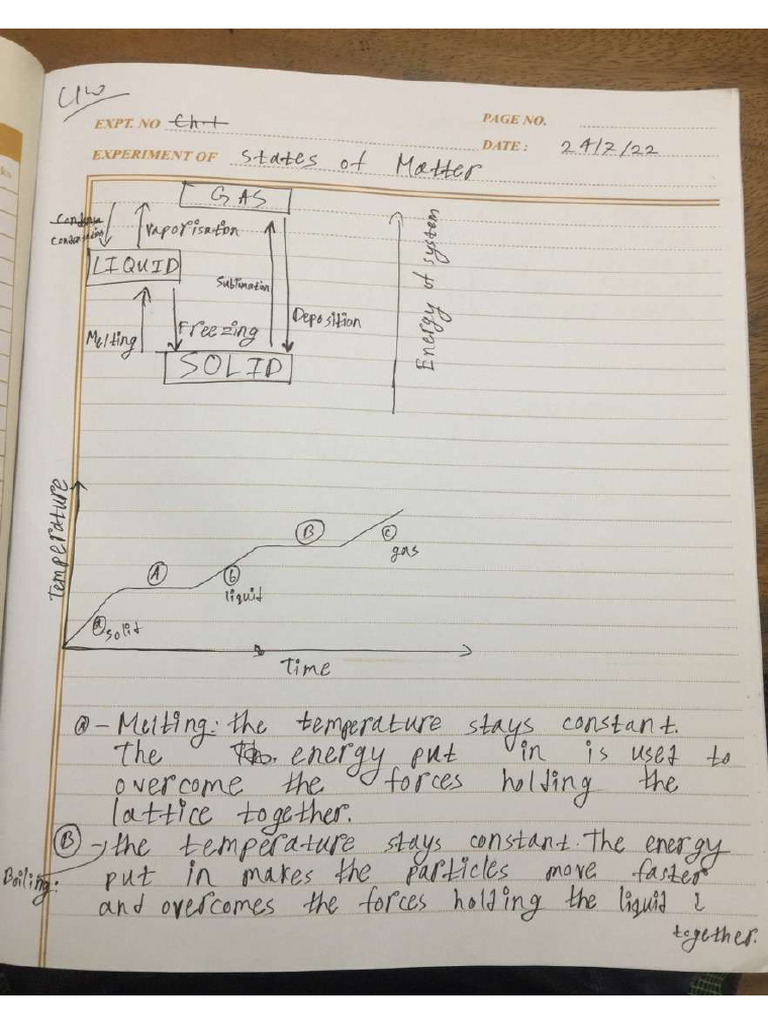 C/W
EXPT. NO Ch-1
PAGE NO.
DATE : 24/2/22
EXPERIMENT OF States of Matter
GAS
Condensation
Vaporisation
LIQUID
Sublimation
Deposition
Melting
Freezing
SOLID
Energy of system
Temperature
A
B
a solid
b liquid
c gas
Time
a - Melting: the temperature stays constant.
The energy put in is used to
overcome the forces holding the
lattice together.
B → the temperature stays constant. The energy
Boiling: put in makes the particles move faster
and overcomes the forces holding the liquid
together.